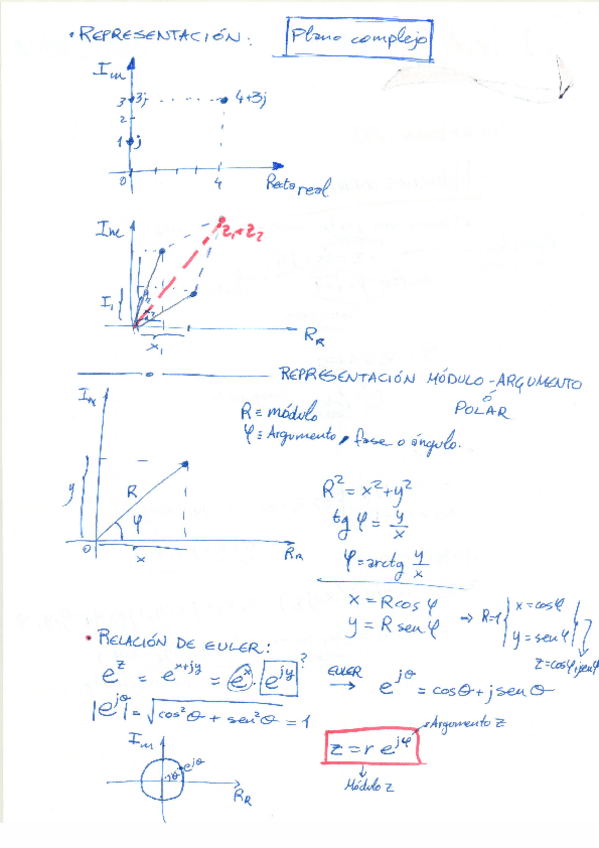 • REPRESENTACIÓN: Plano complejo
Im
3 3j 4+3j
2
1 j
0 4 Recta real
Im
z₁+z₂
I₁
x₁ R_R
REPRESENTACIÓN MÓDULO-ARGUMENTO
ó
POLAR
Im
R ≡ módulo
φ ≡ Argumento, fase o ángulo.
y R φ
0 x R_R
R² = x²+y²
tg φ = y/x
φ = arctg y/x
x = R cos φ
y = R sen φ
→ R=1 { x = cosφ
y = senφ
z=cosφ+jsenφ
• RELACIÓN DE EULER:
e^z = e^(x+jy) = e^x · e^(jy) ? → EULER e^(jθ) = cosθ + j sen θ
|e^(jθ)| = √(cos²θ + sen²θ) = 1
Im
θ e^(jθ)
R_R
z = r e^(jφ)
Argumento z
Módulo z